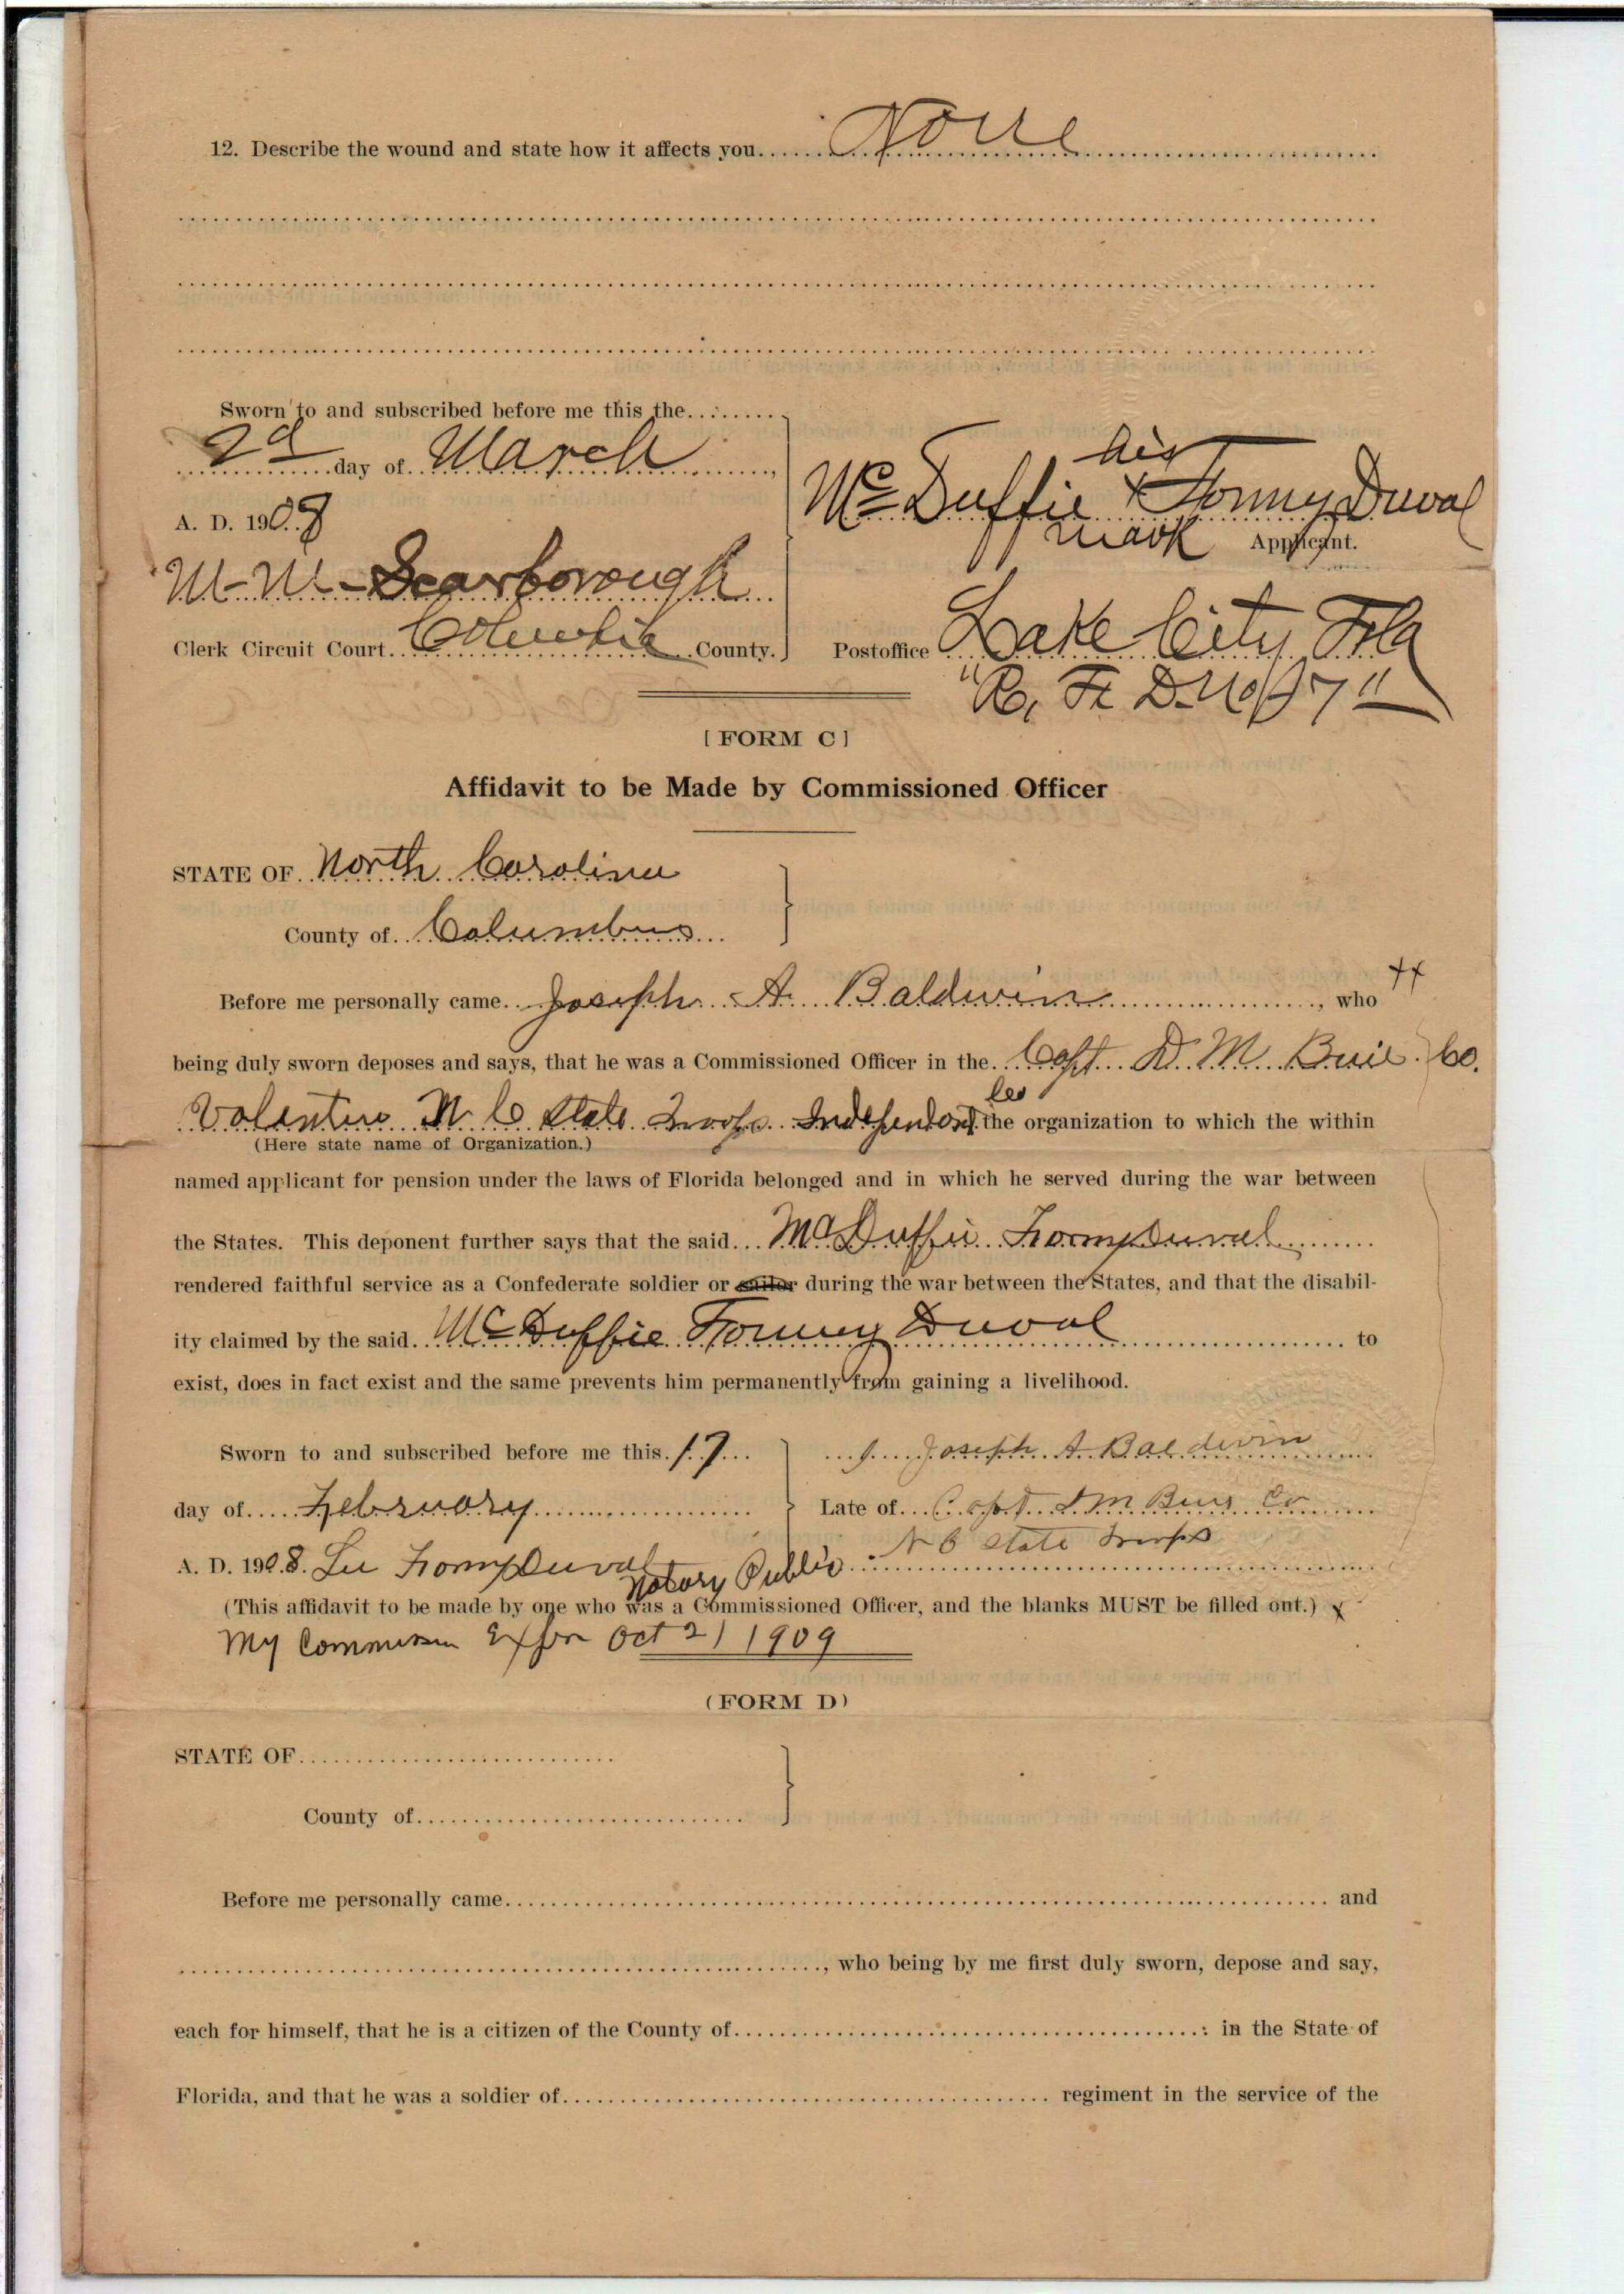 12. Describe the wound and state how it affects you...... None
Sworn to and subscribed before me this the.........
2d day of March
A. D. 1908
his
McDuffie x FormyDuval
mark Applicant.
M. M. Scarborough
Clerk Circuit Court. Columbia County.
Postoffice Lake City Fla
"R. F. D. No 7"
[FORM C]
Affidavit to be Made by Commissioned Officer
STATE OF North Carolina
County of Columbus
Before me personally came Joseph A. Baldwin, who
being duly sworn deposes and says, that he was a Commissioned Officer in the Capt. D. M. Buie Co.
Volenters N C State Troops Independent Co the organization to which the within
(Here state name of Organization.)
named applicant for pension under the laws of Florida belonged and in which he served during the war between
the States. This deponent further says that the said McDuffie FormyDuval
rendered faithful service as a Confederate soldier or sailor during the war between the States, and that the disabil-
ity claimed by the said McDuffie Formy Duval to
exist, does in fact exist and the same prevents him permanently from gaining a livelihood.
Sworn to and subscribed before me this 17
Joseph A Baldwin
day of February
Late of Capt D M Buie Co
N C State Troops
A. D. 1908. Lee FormyDuval
Notary Public
(This affidavit to be made by one who was a Commissioned Officer, and the blanks MUST be filled out.) x
My Commission Expires Oct 21 1909
(FORM D)
STATE OF
County of
Before me personally came and
, who being by me first duly sworn, depose and say,
each for himself, that he is a citizen of the County of : in the State of
Florida, and that he was a soldier of regiment in the service of the